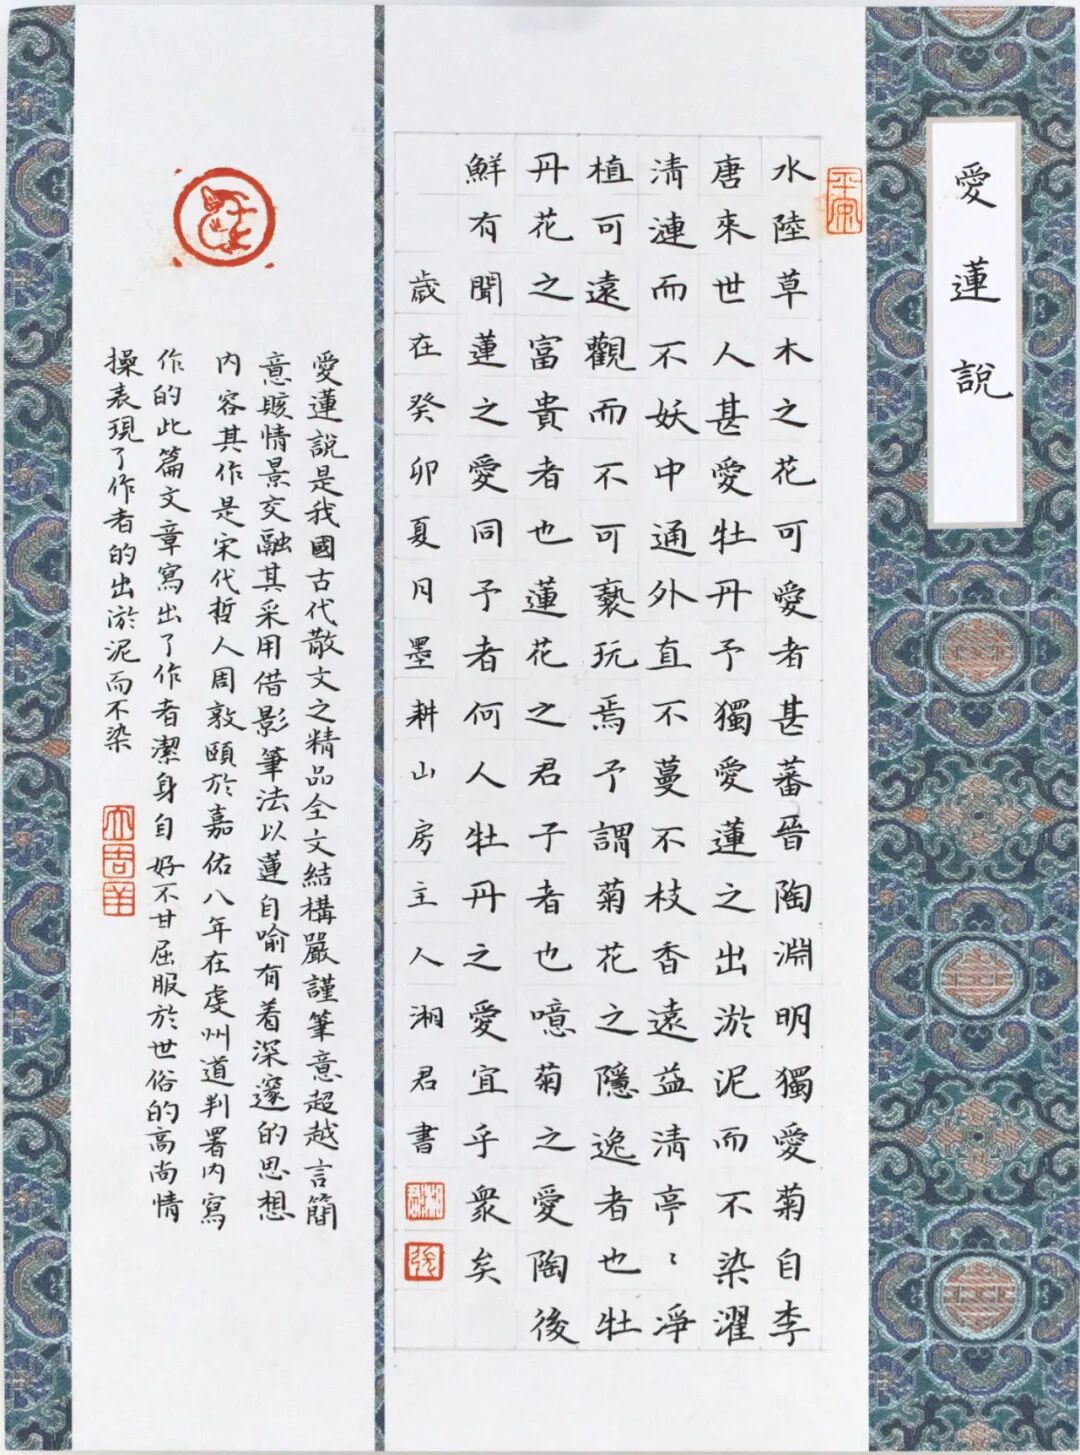 愛蓮說
平安
水陸草木之花可愛者甚蕃晉陶淵明獨愛菊自李
唐來世人甚愛牡丹予獨愛蓮之出淤泥而不染濯
清漣而不妖中通外直不蔓不枝香遠益清亭〻淨
植可遠觀而不可褻玩焉予謂菊花之隱逸者也牡
丹花之富貴者也蓮花之君子者也噫菊之愛陶後
鮮有聞蓮之愛同予者何人牡丹之愛宜乎衆矣
歲在癸卯夏月墨耕山房主人湘君書
湘君
張
愛蓮說是我國古代散文之精品全文結構嚴謹筆意超越言簡
意賅情景交融其采用借影筆法以蓮自喻有着深邃的思想
內容其作是宋代哲人周敦頤於嘉佑八年在虔州道判署內寫
作的此篇文章寫出了作者潔身自好不甘屈服於世俗的高尚情
操表現了作者的出淤泥而不染
大吉羊